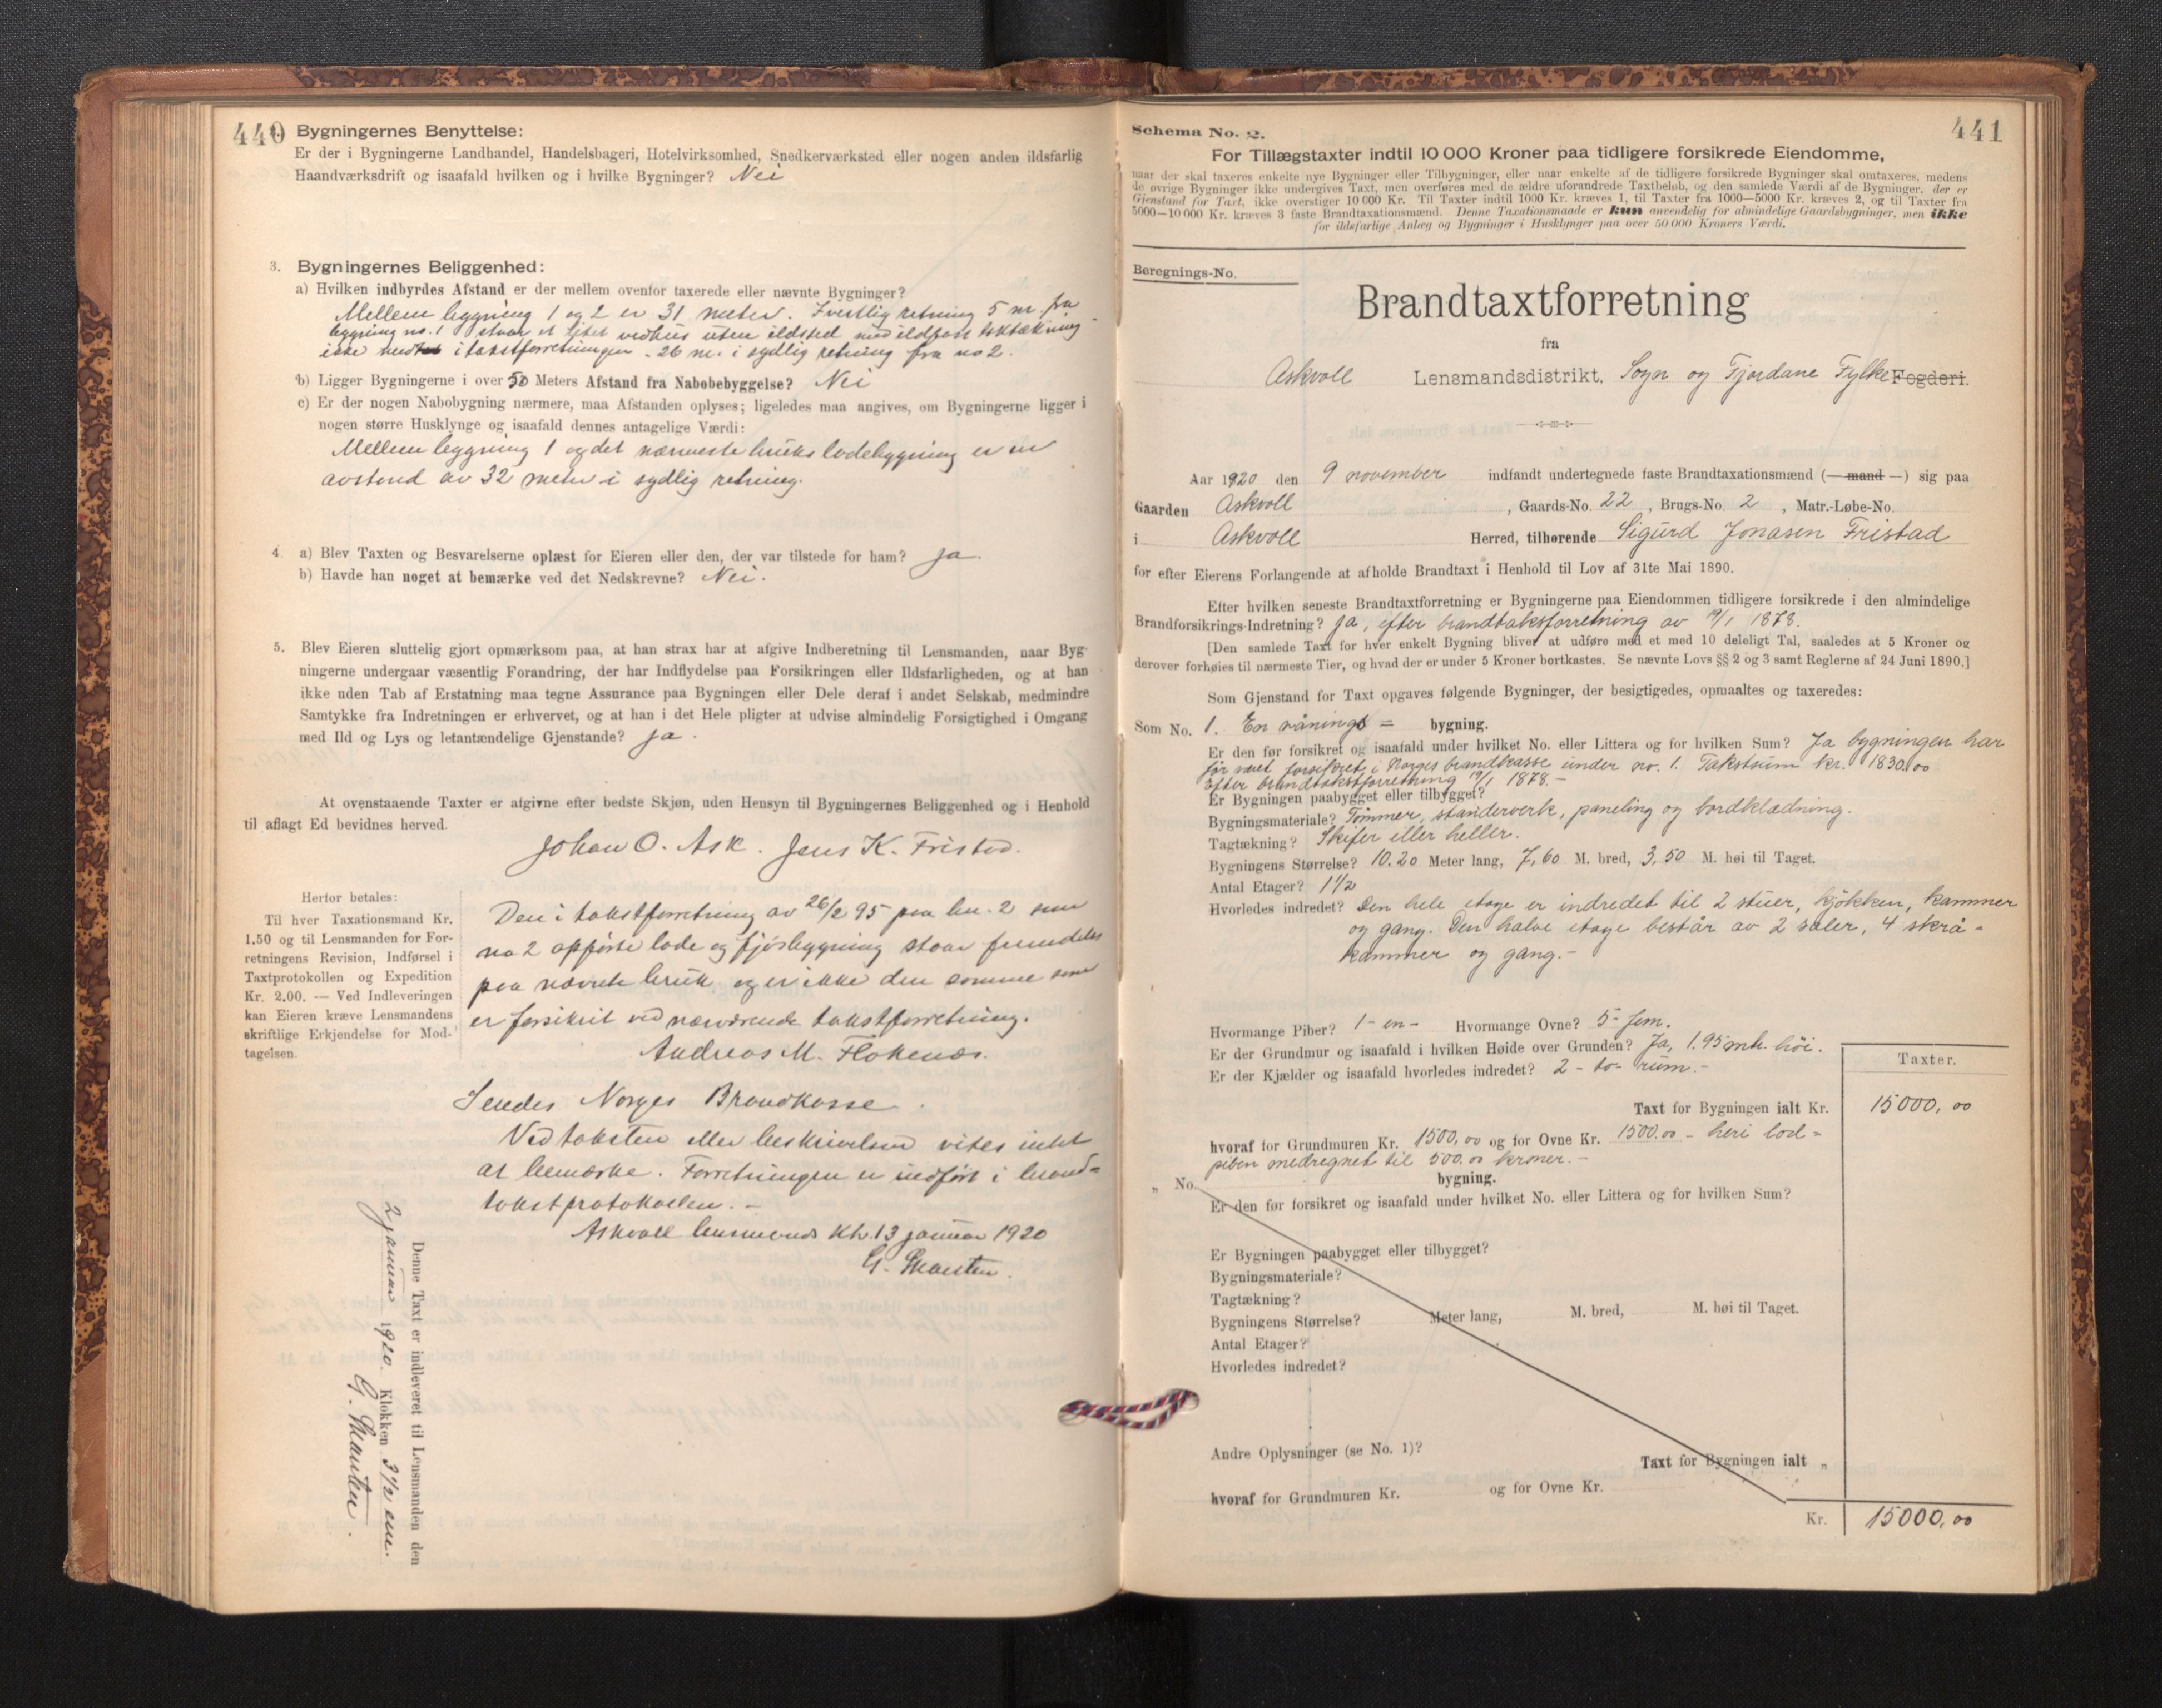 440
Bygningernes Benyttelse:
Er der i Bygningerne Landhandel, Handelsbageri, Hotelvirksomhed, Snedkerværksted eller nogen anden ildsfarlig
Haandværksdrift og isaafald hvilken og i hvilke Bygninger? Nei
3. Bygningernes Beliggenhed:
a) Hvilken indbyrdes Afstand er der mellem ovenfor taxerede eller nævnte Bygninger?
Mellem bygning 1 og 2 er 31 meter. I vestlig retning 5 m. fra
bygning no. 1 staar et litet vedhus uten ildsted med ildfast taktækning
ikke medtat i takstforretningen. 26 m. i sydlig retning fra no 2.
b) Ligger Bygningerne i over 50 Meters Afstand fra Nabobebyggelse? Nei
c) Er der nogen Nabobygning nærmere, maa Afstanden oplyses; ligeledes maa angives, om Bygningerne ligger i
nogen større Husklynge og isaafald dennes antagelige Værdi:
Mellem bygning 1 og det nærmeste bruks ladebygning er en
avstand av 32 meter i sydlig retning.
4. a) Blev Taxten og Besvarelserne oplæst for Eieren eller den, der var tilstede for ham? Ja
b) Havde han noget at bemærke ved det Nedskrevne? Nei.
5. Blev Eieren sluttelig gjort opmærksom paa, at han strax har at afgive Indberetning til Lensmanden, naar Byg-
ningerne undergaar væsentlig Forandring, der har Indflydelse paa Forsikringen eller Ildsfarligheden, og at han
ikke uden Tab af Erstatning maa tegne Assurance paa Bygningen eller Dele deraf i andet Selskab, medmindre
Samtykke fra Indretningen er erhvervet, og at han i det Hele pligter at udvise almindelig Forsigtighed i Omgang
med Ild og Lys og letantændelige Gjenstande? Ja.
At ovenstaaende Taxter er afgivne efter bedste Skjøn, uden Hensyn til Bygningernes Beliggenhed og i Henhold
til aflagt Ed bevidnes herved.
Johan O. Ask. Jens K. Fristad.
Herfor betales:
Til hver Taxationsmand Kr.
1.50 og til Lensmanden for For-
retningens Revision, Indførsel i
Taxtprotokollen og Expedition
Kr. 2.00. — Ved Indleveringen
kan Eieren kræve Lensmandens
skriftlige Erkjendelse for Mod-
tagelsen.
Den i takstforretning av 26/2 95 paa bn. 2 som
no 2 opførte lade og fjøsbygning staar fremdeles
paa nævnte bruk og er ikke den samme som
er forsikret ved nærværende takstforretning.
Andreas M. Flokenæs.
Sendes Norges Brandkasse.
Ved taksten eller beskrivelsen vites intet
at bemærke. Forretningen er indført i brand-
takstprotokollen. -
Askvoll lensmands kt. 13 januar 1920
Denne Taxt er indleveret til Lensmanden den
2 januar 1920. Klokken 3 1/2 em.
441
Schema No. 2.
For Tillægstaxter indtil 10 000 Kroner paa tidligere forsikrede Eiendomme,
naar der skal taxeres enkelte nye Bygninger eller Tilbygninger, eller naar enkelte af de tidligere forsikrede Bygninger skal omtaxeres, medens
de øvrige Bygninger ikke undergives Taxt, men overføres med de ældre uforandrede Taxtbeløb, og den samlede Værdi af de Bygninger, der er
Gjenstand for Taxt, ikke overstiger 10 000 Kr. Til Taxter indtil 1000 Kr. kræves 1, til Taxter fra 1000—5000 Kr. kræves 2, og til Taxter fra
5000—10 000 Kr. kræves 3 faste Brandtaxationsmænd. Denne Taxationsmaade er kun anvendelig for almindelige Gaardsbygninger, men ikke
for ildsfarlige Anlæg og Bygninger i Husklynger paa over 50 000 Kroners Værdi.
Beregnings-No.
Brandtaxtforretning
fra
Askvoll Lensmandsdistrikt, Sogn og Fjordane Fylke Fogderi.
Aar 1920 den 9 november indfandt undertegnede faste Brandtaxationsmænd (— mand —) sig paa
Gaarden Askvoll, Gaards-No. 22, Brugs-No. 2, Matr.-Løbe-No.
i Askvoll Herred, tilhørende Sigurd Jonasen Fristad
for efter Eierens Forlangende at afholde Brandtaxt i Henhold til Lov af 31te Mai 1890.
Efter hvilken seneste Brandtaxtforretning er Bygningerne paa Eiendommen tidligere forsikrede i den almindelige
Brandforsikrings-Indretning? Ja, efter brandtakstforretning av 19/1 1878.
[Den samlede Taxt for hver enkelt Bygning bliver at udføre med et med 10 deleligt Tal, saaledes at 5 Kroner og
derover forhøies til nærmeste Tier, og hvad der er under 5 Kroner bortkastes. Se nævnte Lovs §§ 2 og 3 samt Reglerne af 24 Juni 1890.]
Som Gjenstand for Taxt opgaves følgende Bygninger, der besigtigedes, opmaaltes og taxeredes:
Som No. 1. En våning = bygning.
Er den før forsikret og isaafald under hvilket No. eller Littera og for hvilken Sum? Ja bygningen har
før været forsikret i Norges brandkasse under no. 1. Takstsum kr. 1830.00
efter brandtakstforretning 19/1 1878. -
Er Bygningen paabygget eller tilbygget?
Bygningsmateriale? Tømmer, standerverk, paneling og bordklædning.
Tagtækning? Skifer eller heller.
Bygningens Størrelse? 10.20 Meter lang, 7,60 M. bred, 3,50 M. høi til Taget.
Antal Etager? 1 1/2
Hvorledes indredet? Den hele etage er indredet til 2 stuer, kjøkken, kammer
og gang. Den halve etage består av 2 saler, 4 skrå-
kammer og gang. -
Hvormange Piber? 1 - en - Hvormange Ovne? 5 - fem.
Er der Grundmur og isaafald i hvilken Høide over Grunden? Ja, 1.95 mtr. høi.
Er der Kjælder og isaafald hvorledes indredet? 2 - to - rum. -
Taxter.
Taxt for Bygningen ialt Kr. 15000,00
hvoraf for Grundmuren Kr. 1500,00 og for Ovne Kr. 1500.00 - heri lod-
piben medregnet til 500.00 kroner. -
" No. bygning.
Er den før forsikret og isaafald under hvilket No. eller Littera og for hvilken Sum?
Er Bygningen paabygget eller tilbygget?
Bygningsmateriale?
Tagtækning?
Bygningens Størrelse? Meter lang, M. bred, M. høi til Taget.
Antal Etager?
Hvorledes indredet?
Andre Oplysninger (se No. 1)?
Taxt for Bygningen ialt "
hvoraf for Grundmuren Kr. og for Ovne Kr.
Kr. 15000,00